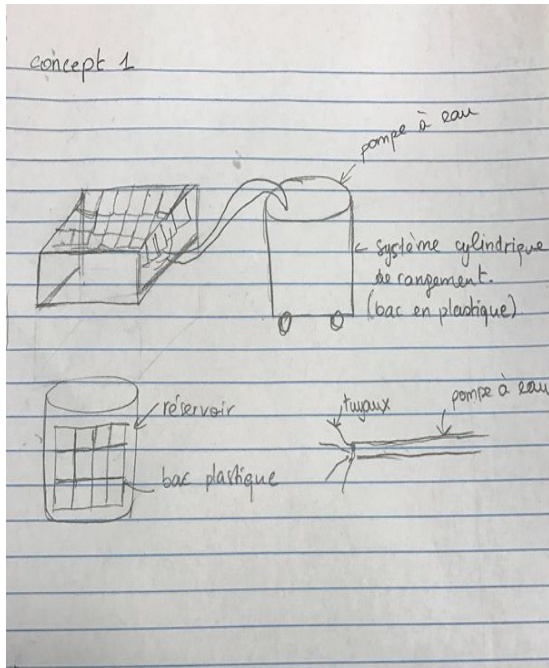 concept 1
pompe à eau
système cylindrique
de rangement.
(bac en plastique)
réservoir
bac plastique
tuyaux
pompe à eau